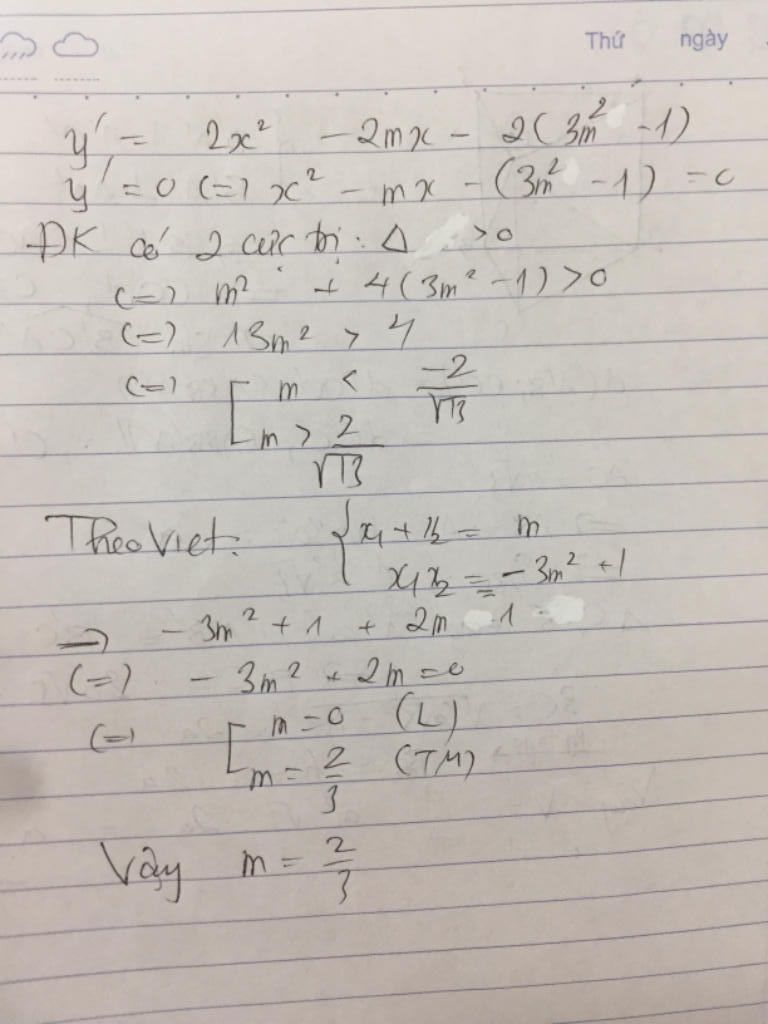 Thứ ngày
y' = 2x² - 2mx - 2(3m² - 1)
y' = 0 (=) x² - mx - (3m² - 1) = 0
ĐK có 2 cực trị: Δ > 0
(=) m² + 4(3m² - 1) > 0
(=) 13m² > 4
(=) [ m < -2/√13
m > 2/√13
Theo Viet: { x₁ + x₂ = m
x₁x₂ = -3m² + 1
=> -3m² + 1 + 2m 1
(=) -3m² + 2m = 0
(=) [ m = 0 (L)
m = 2/3 (TM)
Vậy m = 2/3